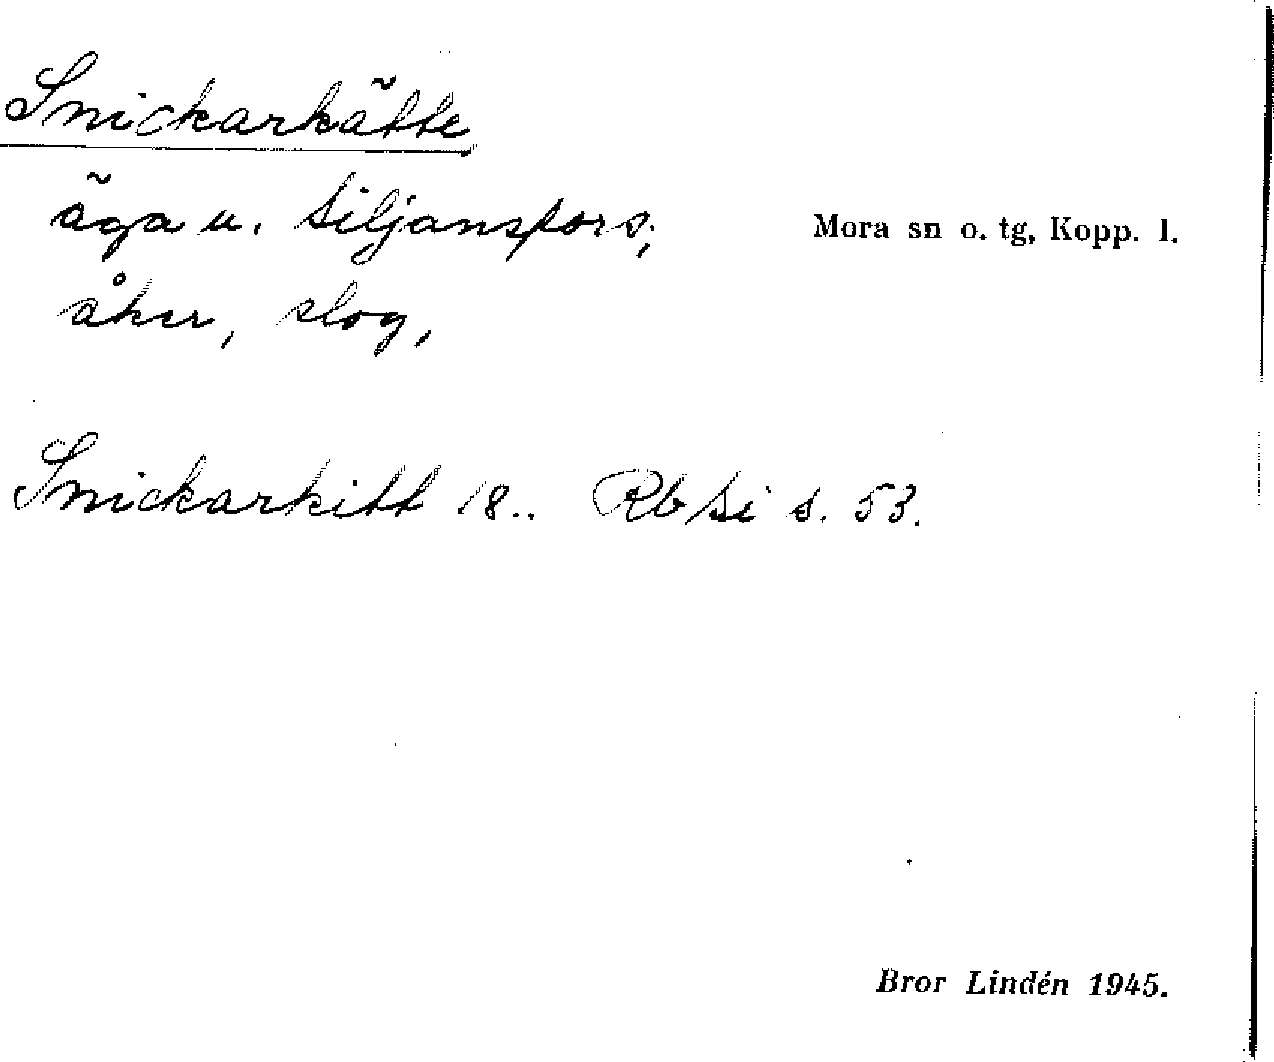 Snickarkätte
äga u. Siljansfors,
Mora sn o. tg, Kopp. l.
åker, slog,
Snickarkitt 18.. Rb Si s. 53.
Bror Lindén 1945.